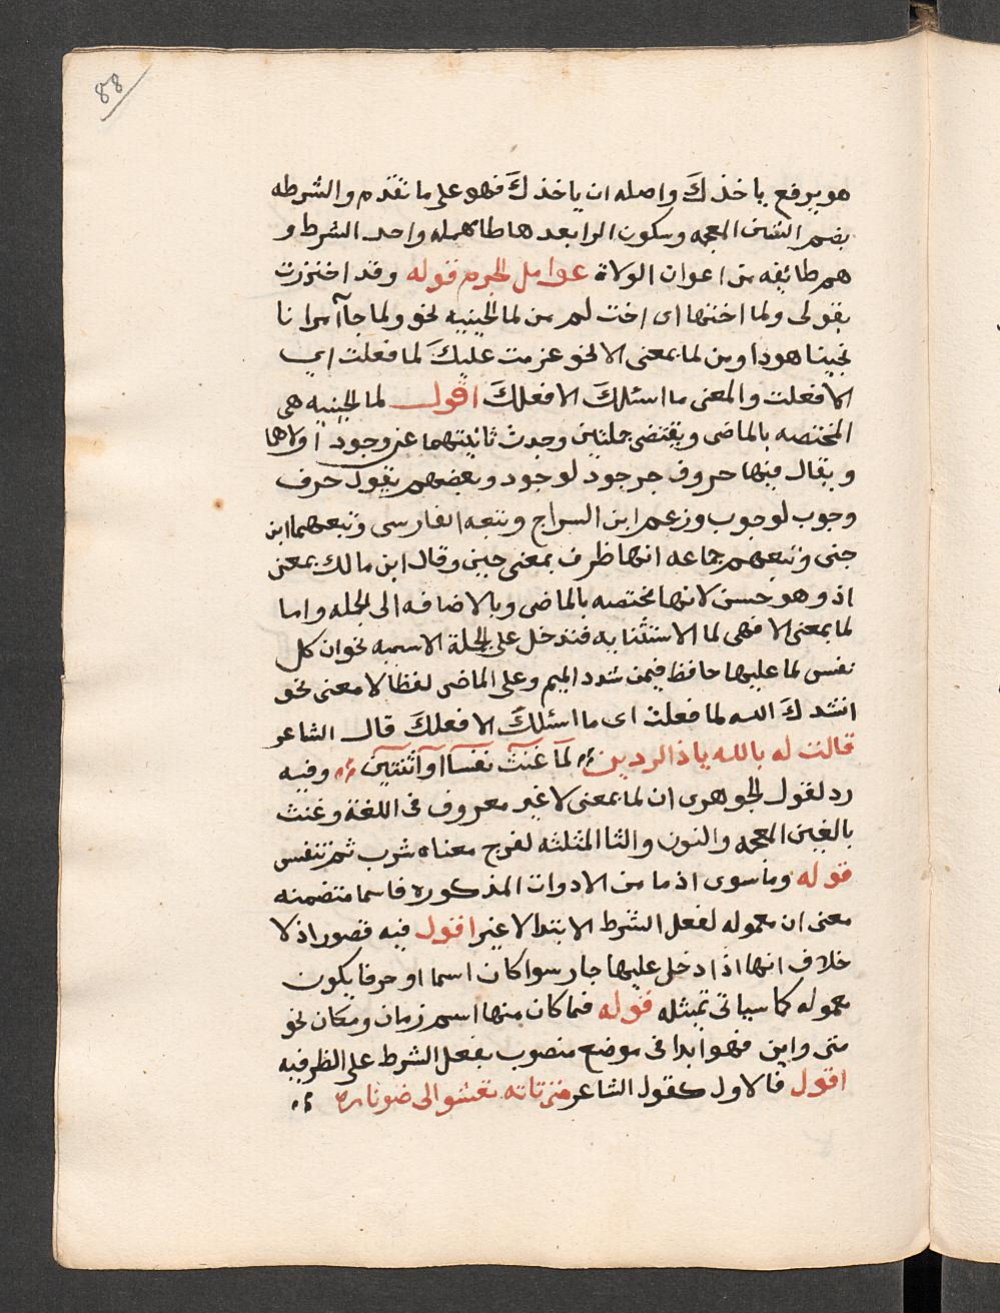 88
هو يرفع ياخذكَ واصله ان ياخذكَ فهو على ما تقدم والشرطه
بضم الشين المعجمه وسكون الرا بعدها طا مهمله واحد الشرط و
هم طائفه من اعوان الولاة عوامل الجزم قوله وقد احترزت
بقولى ولما اختها اى اخت لم من لما الحينيه نحو ولما جآ امرنا
نجينا هودا ومن لما بمعنى الا نحو عزمت عليكَ لما فعلت اي
الا فعلت والمعنى ما اسئلكَ الا فعلكَ اقول لما الحينيه هى
المختصه بالماضى ويقتضى جملتين وجدت ثانيتهما عن وجود اولاها
ويقال فيها حروف جر جود لوجود وبعضهم يقول حرف
وجوب لوجوب وزعم ابن السراج وتبعه الفارسى وتبعهما ابن
جنى وتبعهم جماعه انها ظرف بمعنى حين وقال ابن مالك بمعنى
اذ وهو حسن لانها مختصه بالماضى وبالاضافه الى الجمله واما
لما بمعنى الا فهى لما الاستثنائيه فتدخل على الجملة الاسميه نحو ان كل
نفس لما عليها حافظ فيمن شدد الميم وعلى الماضى لفظا لا معنى نحو
انشدكَ الله لما فعلت اى ما اسئلكَ الا فعلكَ قال الشاعر
قالت له بالله ياذا البردين لمآ غنثت نفسآ او آثنتين وفيه
رد لقول الجوهرى ان لما بمعنى لا غير معروف فى اللغة وغنث
بالغين المعجمه والنون والثا المثلثه لفرح معناه شرب ثم تنفس
قوله وما سوى اذ ما من الادوات المذكوره فاسما متضمنه
معنى ان معموله لفعل الشرط الابتدا لا غير اقول فيه قصور اذ لا
خلاف انها اذا دخل عليها جار سوا كان اسما او حرفا يكون
معموله كما سياتى تمثيله قوله فما كان منها اسم زمان ومكان نحو
متى واين فهو ابدا فى موضع منصوب بفعل الشرط على الظرفيه
اقول فالاول كقول الشاعر متى تاته تعشو الى ضو ناره